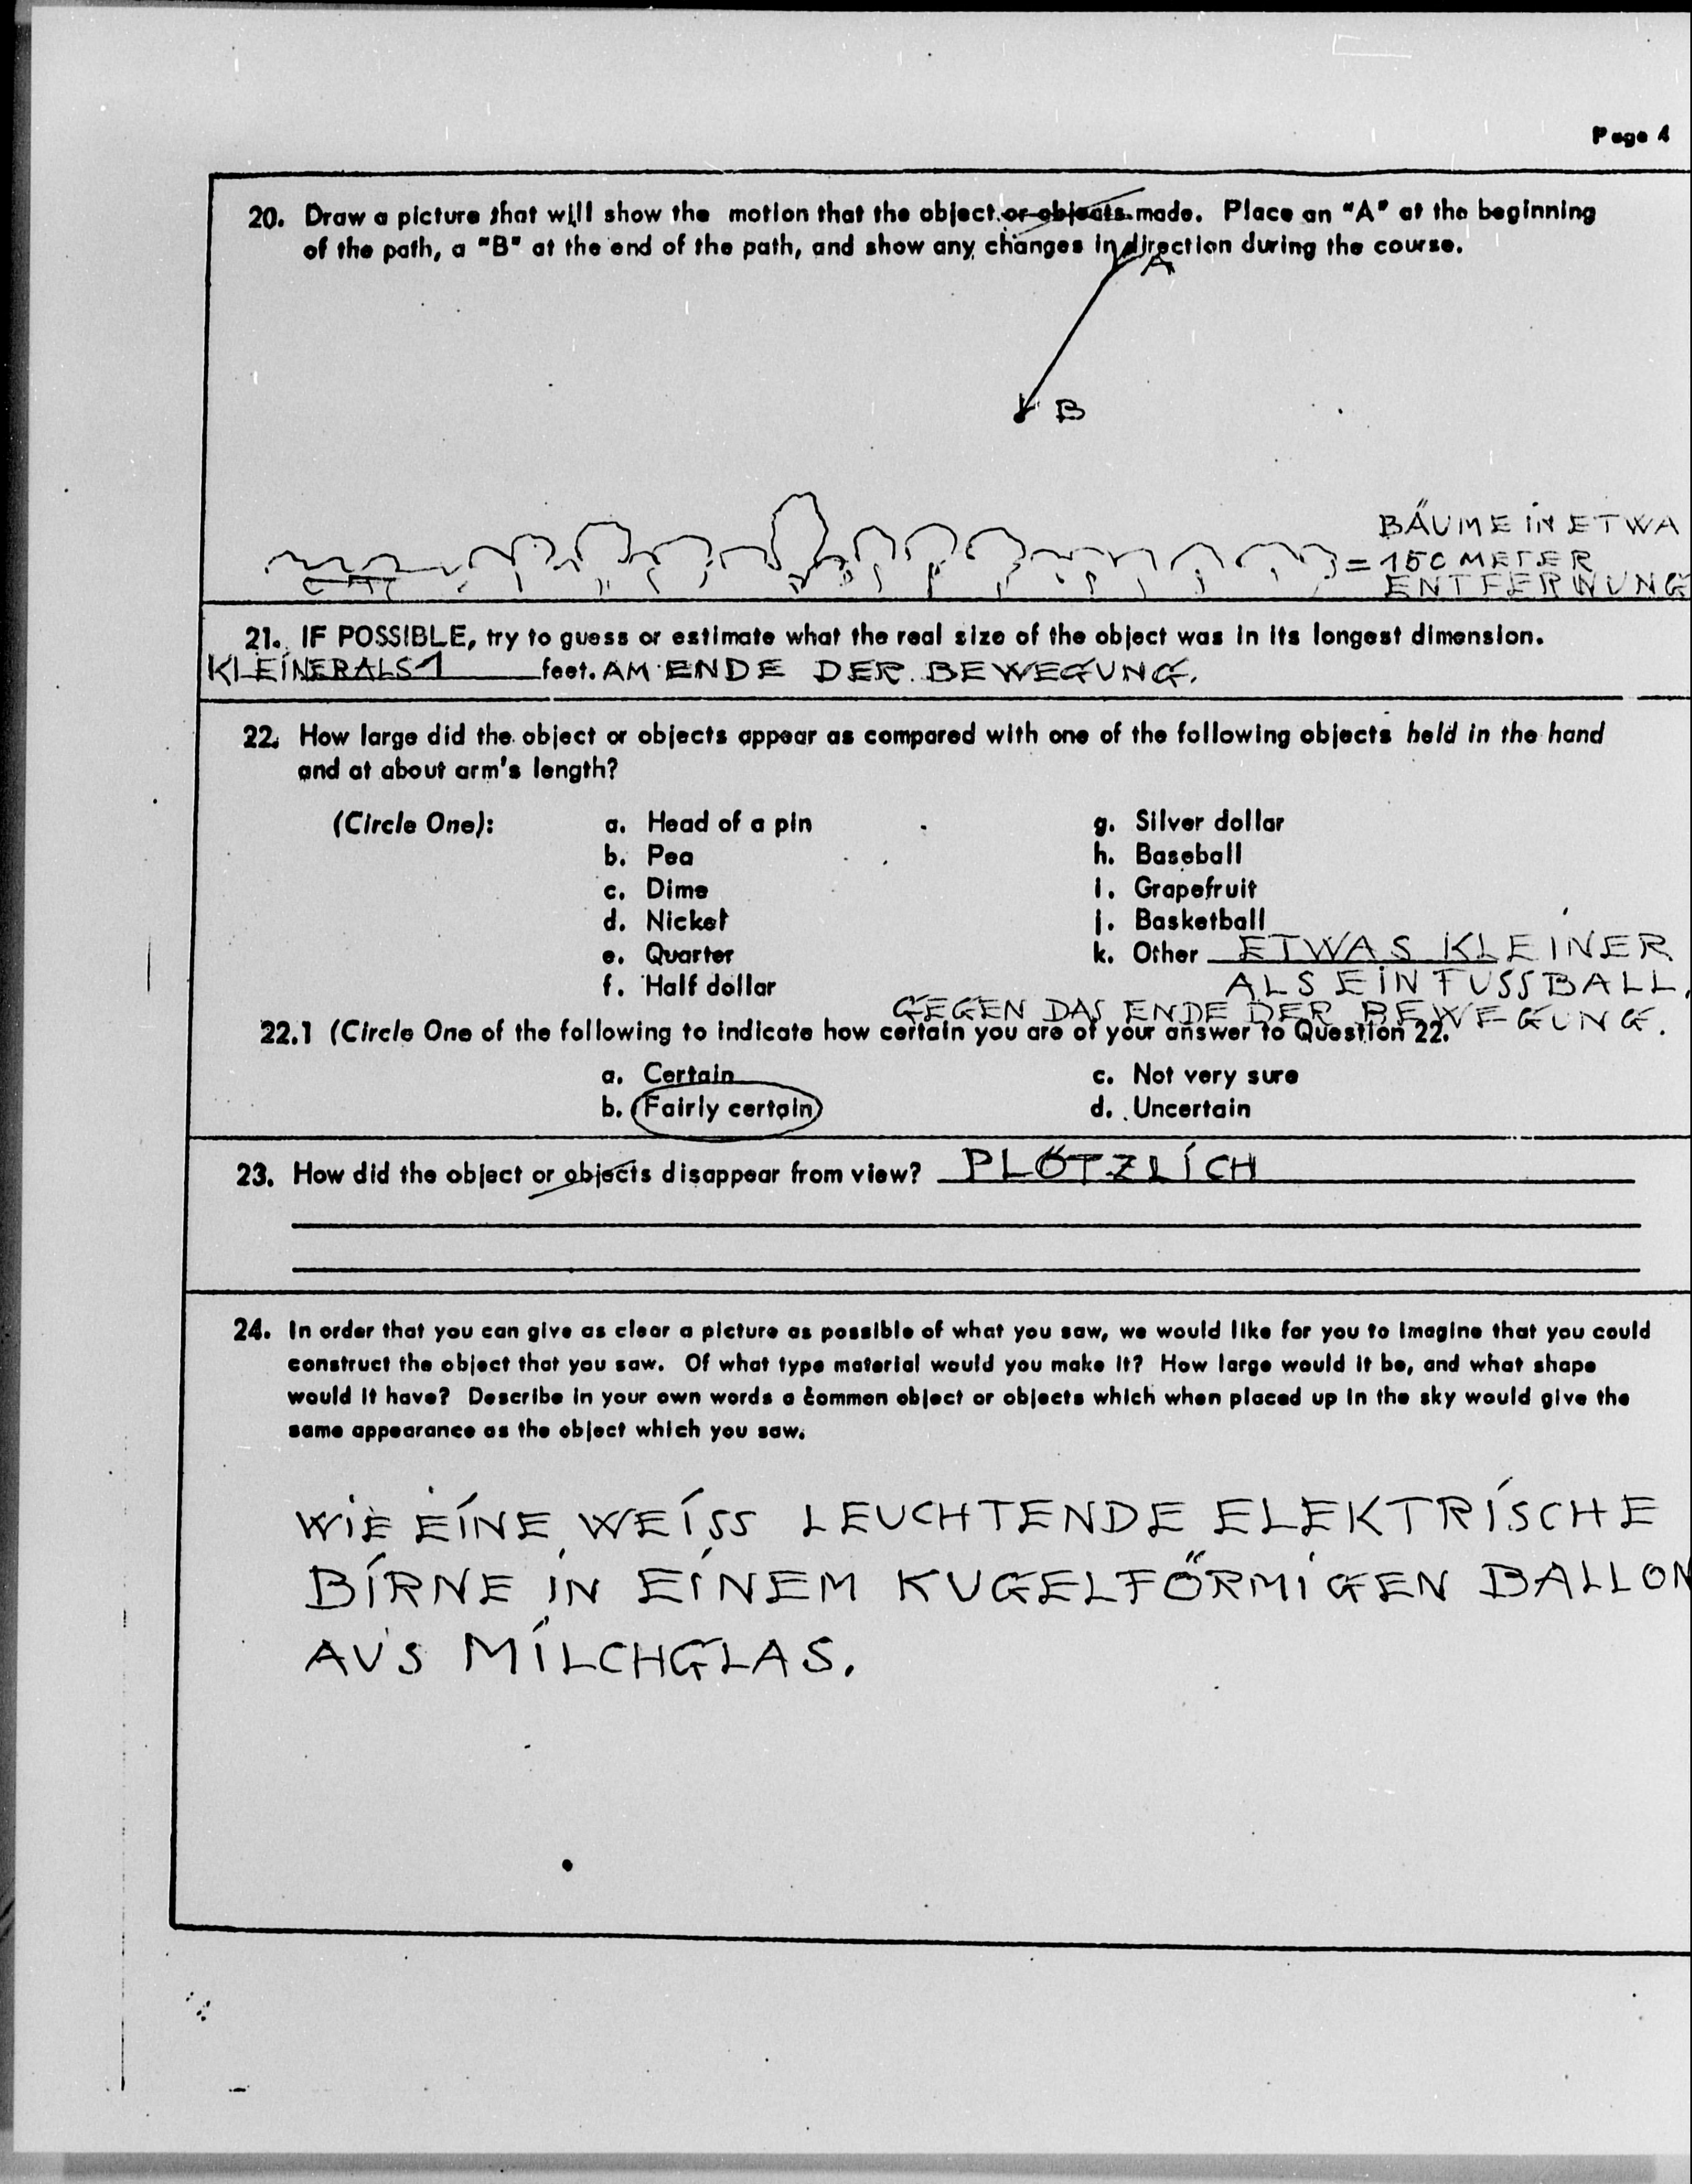 Page 4
20. Draw a picture that will show the motion that the object or objects made. Place an "A" at the beginning
of the path, a "B" at the end of the path, and show any changes in direction during the course.
A
B
BÄUME IN ETWA
= 150 METER
ENTFERNUNG
21. IF POSSIBLE, try to guess or estimate what the real size of the object was in its longest dimension.
KLEINER ALS 1 feet. AM ENDE DER BEWEGUNG.
22. How large did the object or objects appear as compared with one of the following objects held in the hand
and at about arm's length?
(Circle One): a. Head of a pin g. Silver dollar
b. Pea h. Baseball
c. Dime i. Grapefruit
d. Nickel j. Basketball
e. Quarter k. Other ETWAS KLEINER
f. Half dollar ALS EIN FUSSBALL,
GEGEN DAS ENDE DER BEWEGUNG.
22.1 (Circle One of the following to indicate how certain you are of your answer to Question 22.
a. Certain c. Not very sure
b. Fairly certain d. Uncertain
23. How did the object or objects disappear from view? PLÖTZLICH
24. In order that you can give as clear a picture as possible of what you saw, we would like for you to imagine that you could
construct the object that you saw. Of what type material would you make it? How large would it be, and what shape
would it have? Describe in your own words a common object or objects which when placed up in the sky would give the
same appearance as the object which you saw.
WIE EINE WEISS LEUCHTENDE ELEKTRISCHE
BIRNE IN EINEM KUGELFÖRMIGEN BALLON
AUS MILCHGLAS.